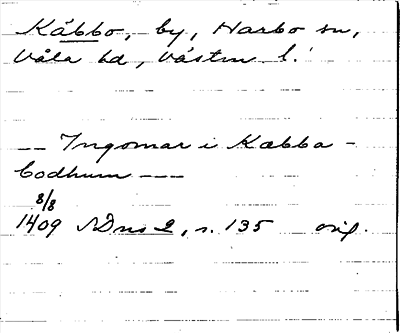 Käbbo, by, Harbo sn,
Våla hd, Västm l.
-- Ingomar i Kæbba-
bodhum ---
8/8
1409 SDns 2, s. 135 orig.